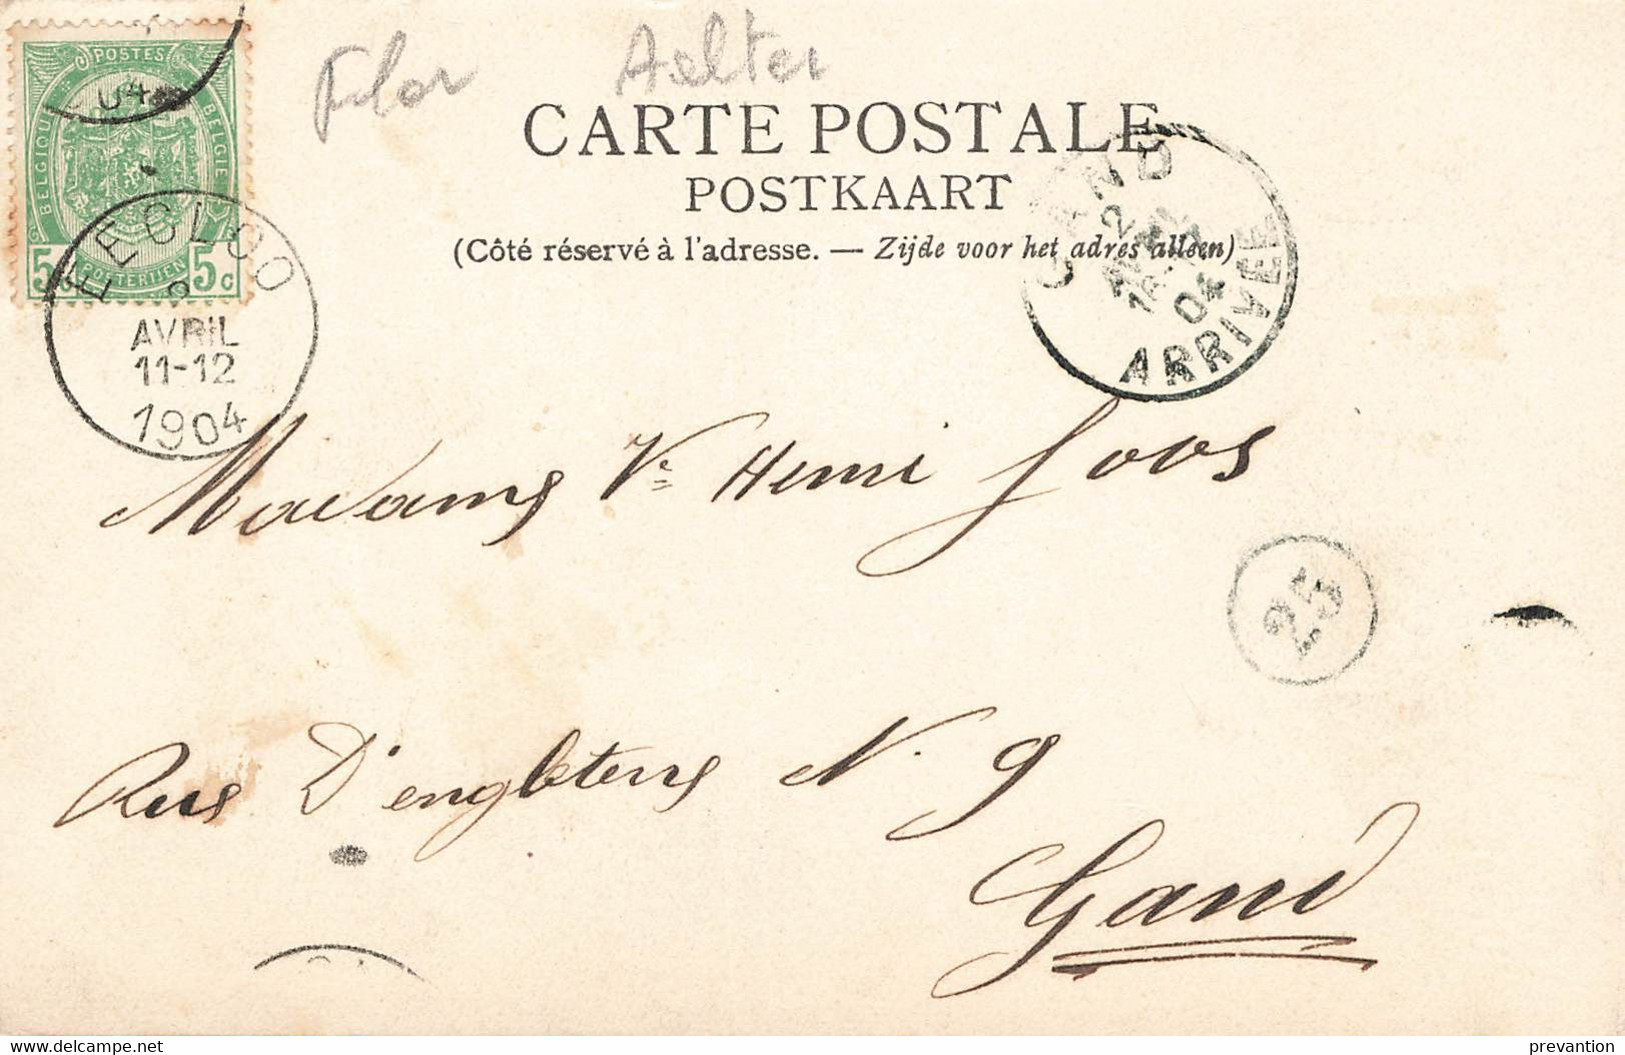 POSTES
BELGIQUE
BELGIE
5c
POSTERIJEN
5c
04
EECLOO
AVRIL
11-12
1904
Flor
Aelter
CARTE POSTALE
POSTKAART
(Côté réservé à l'adresse. — Zijde voor het adres alleen)
GAND
2
04
ARRIVÉE
Madame Ve Henri Joos
25
Rue D'engleterre N. 9
Gand
delcampe.net
prevantion